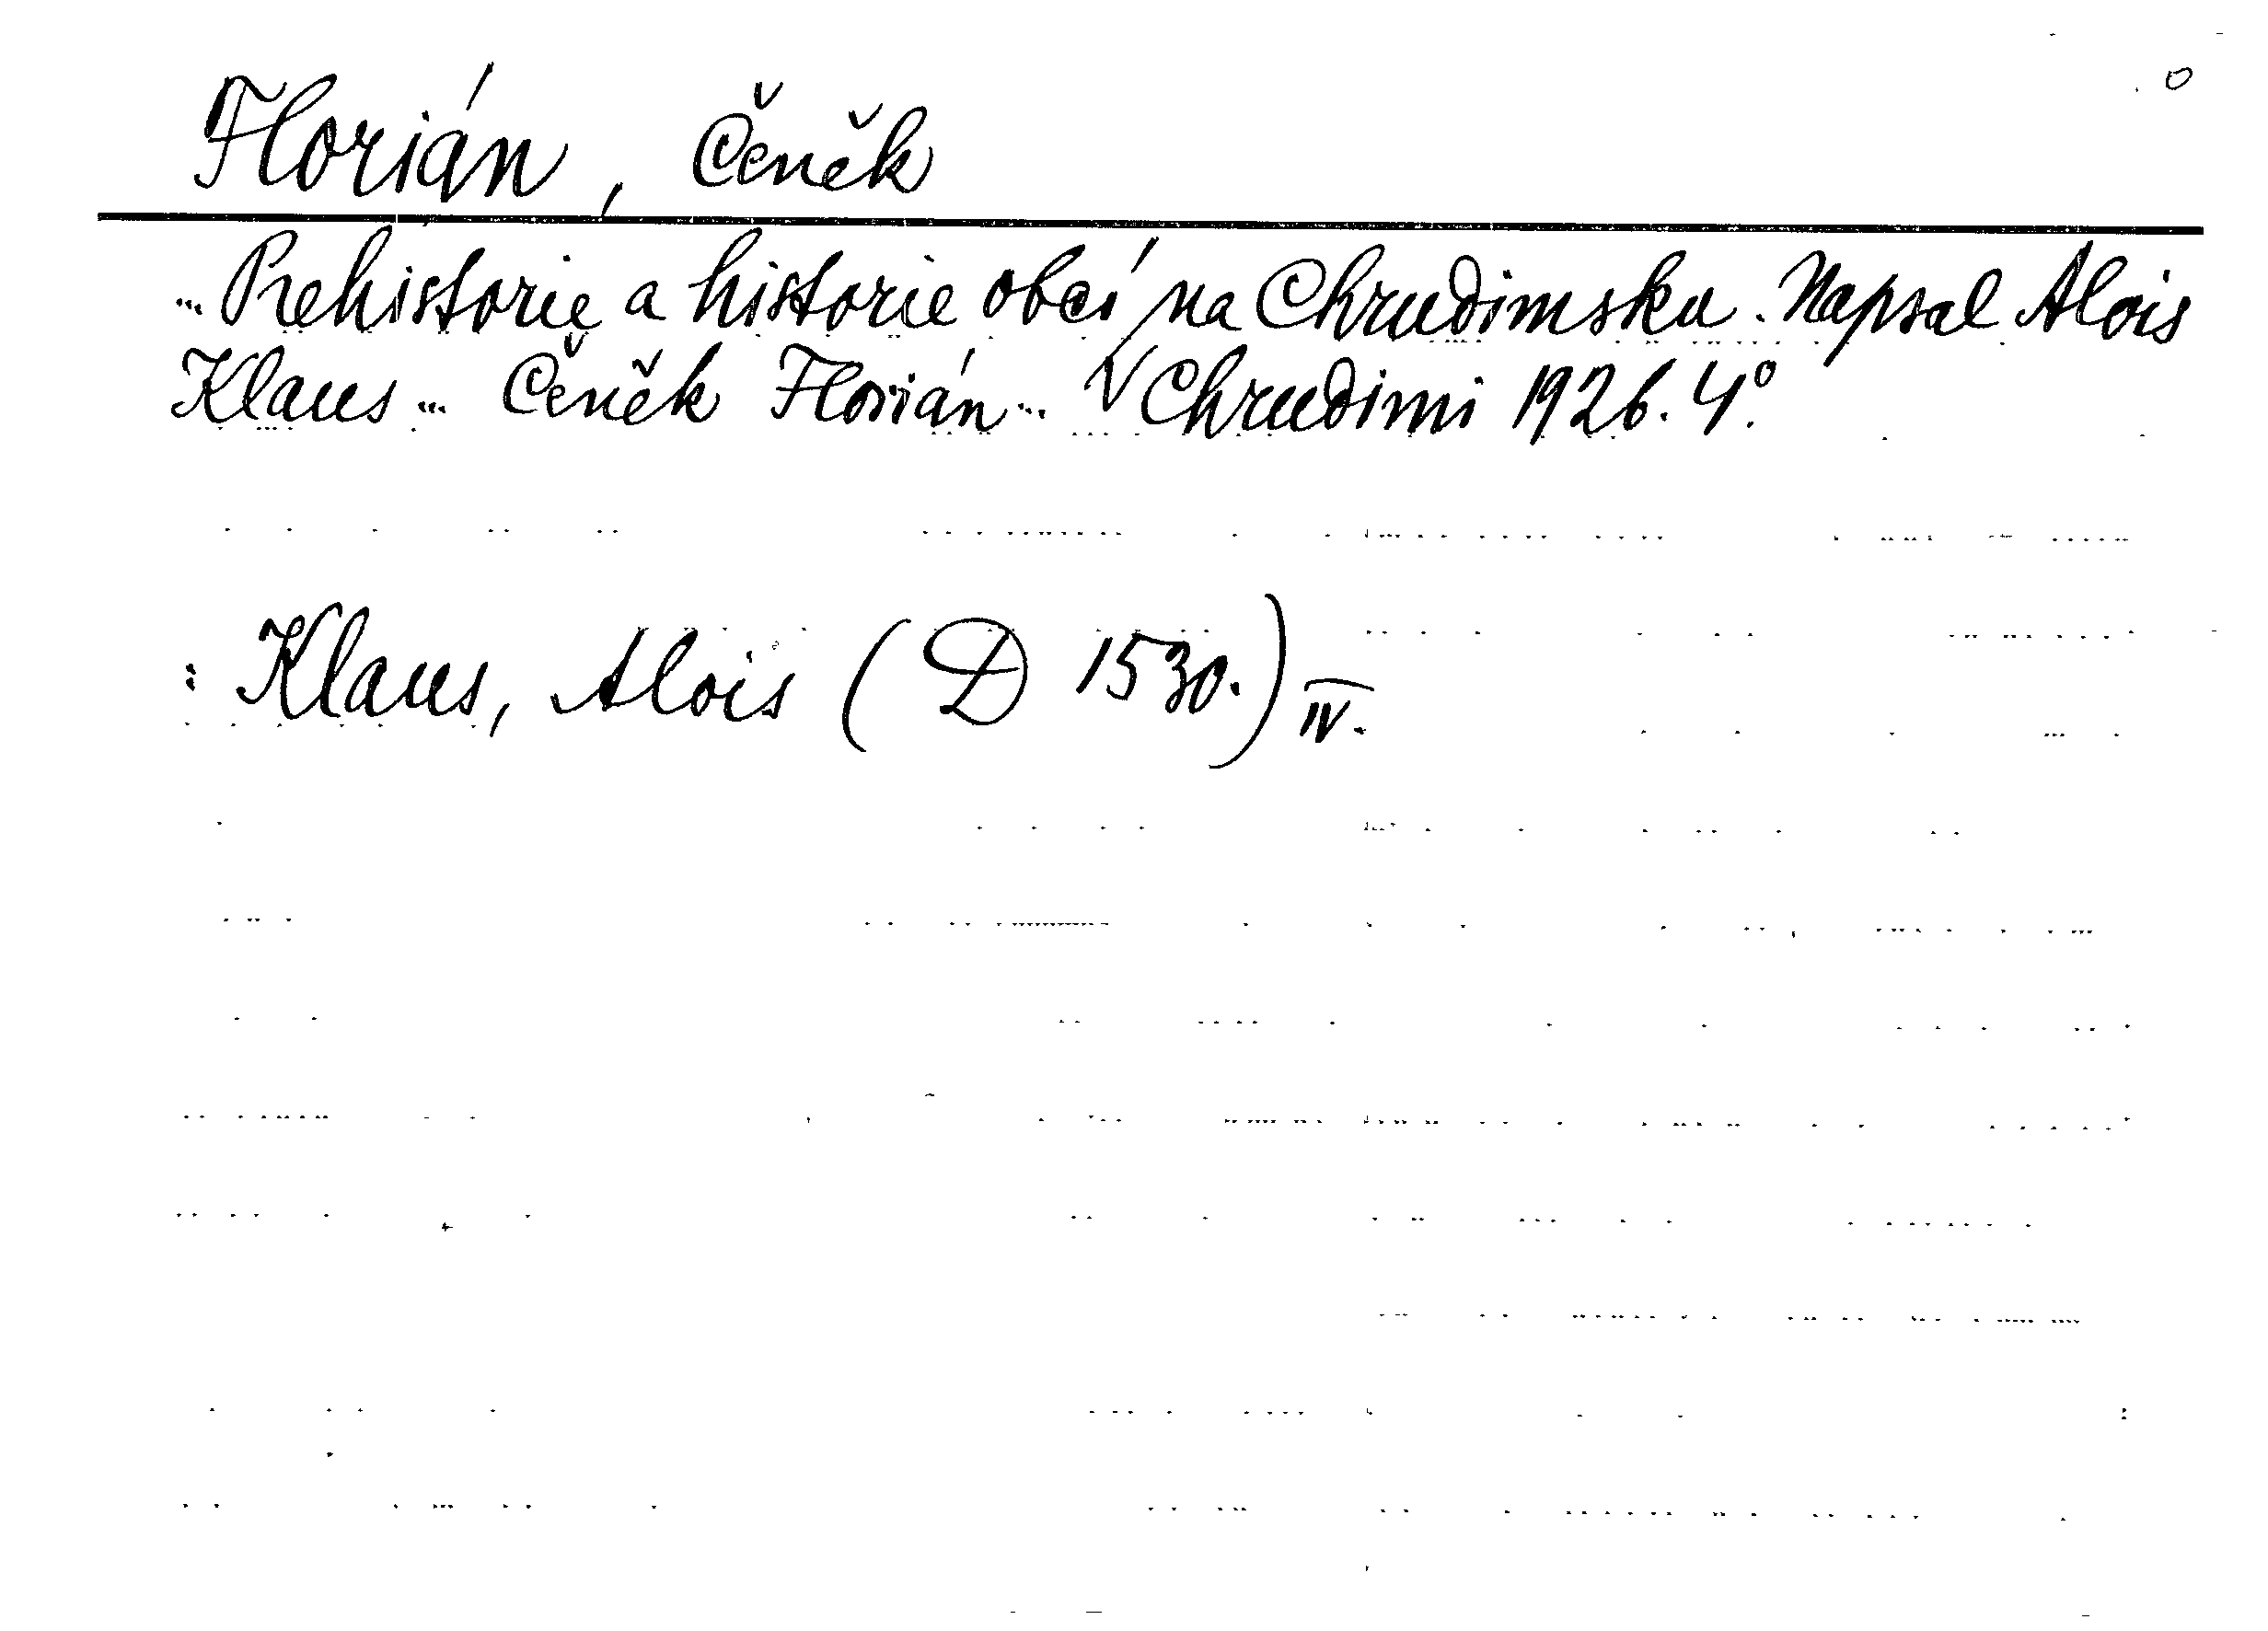 Florián, Čeněk
... Prehistorie a historie obcí na Chrudimsku. Napsal Alois
Klaus ... Čeněk Florián ... V Chrudimi 1926. 4°.
: Klaus, Alois (D 1530.) IV.